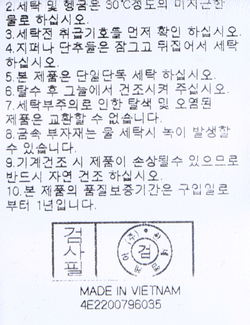 2.세탁 및 헹굼은 30℃정도의 미지근한
물로 하십시오.
3.세탁전 취급기호를 먼저 확인 하십시오.
4.지퍼나 단추들은 잠그고 뒤집어서 세탁
하십시오.
5.본 제품은 단일단독 세탁 하십시오.
6.탈수 후 그늘에서 건조시켜 주십시오.
7.세탁부주의로 인한 탈색 및 오염된
제품은 교환할 수 없습니다.
8.금속 부자재는 물 세탁시 녹이 발생할
수 있습니다.
9.기계건조 시 제품이 손상될수 있으므로
반드시 자연 건조 하십시오.
10.본 제품의 품질보증기간은 구입일로
부터 1년입니다.
검사필
검
MADE IN VIETNAM
4E2200796035